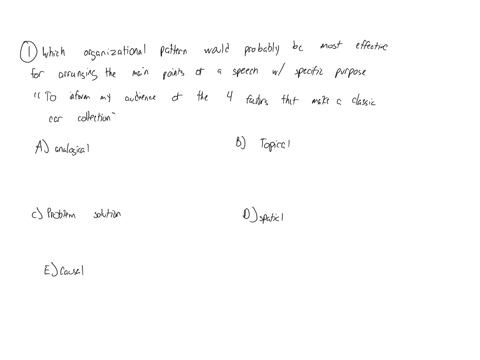 ① Which organizational pattern would probably be most effective
for arranging the main points of a speech w/ specific purpose
"To inform my audience of the 4 factors that make a classic
car collection"
A) analogical B) Topical
C) Problem solution D) spatial
E) Causal